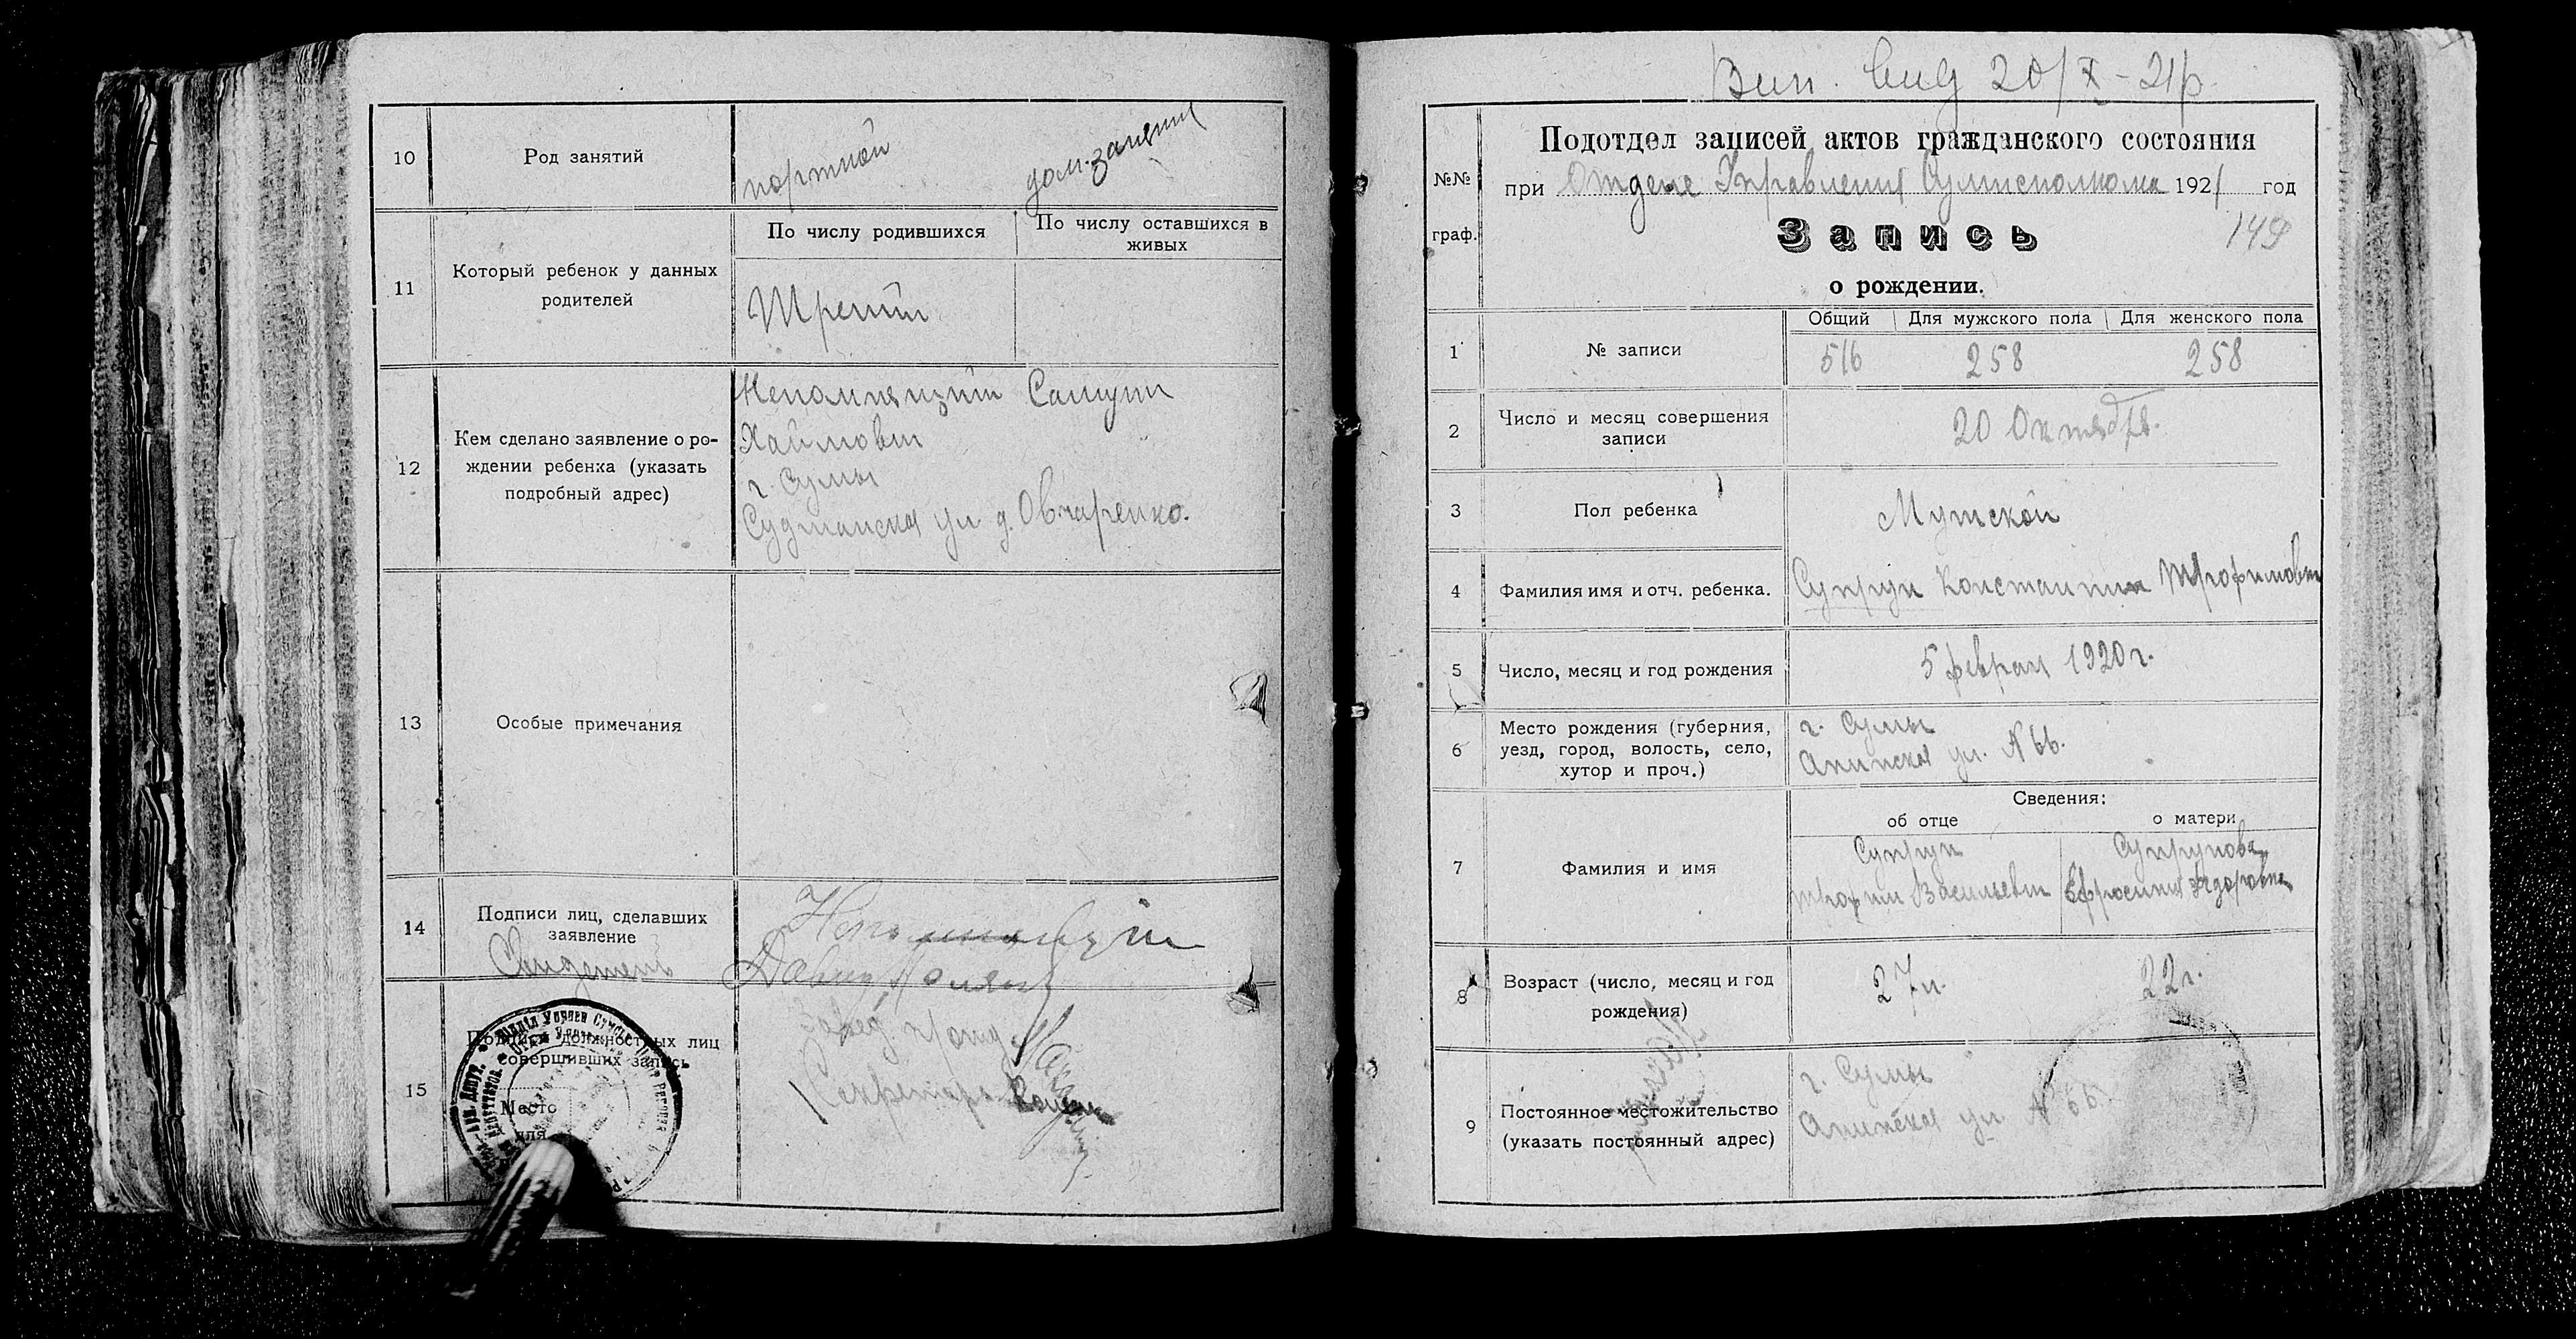 10
Род занятий
портной
дом. занятия
11
Который ребенок у данных
родителей
По числу родившихся
По числу оставшихся в
живых
Третий
12
Кем сделано заявление о ро-
ждении ребенка (указать
подробный адрес)
Непомнящий Самуил
Хаимович
г. Сумы
Суджанская ул д. Овчаренко.
13
Особые примечания
14
Подписи лиц, сделавших
заявление
Свидетель
Непомнящий
15
Подписи должностных лиц
совершивших запись
Место
для
Завед.
Секретарь
20/X-21р.
Подотдел записей актов гражданского состояния
№№
граф.
при Отделе Управления Сумисполкома 1921 год
Запись
149
о рождении.
1
№ записи
Общий
Для мужского пола
Для женского пола
516
258
258
2
Число и месяц совершения
записи
20 Октября.
3
Пол ребенка
Мужской
4
Фамилия имя и отч. ребенка.
Супрун Константин Трофимович
5
Число, месяц и год рождения
5 февраля 1920 г.
6
Место рождения (губерния,
уезд, город, волость, село,
хутор и проч.)
г. Сумы
ул. N 66.
7
Фамилия и имя
Сведения:
об отце
о матери
Супрун
Трофим Васильевич
Супрунова
Ефросиния Федоровна
8
Возраст (число, месяц и год
рождения)
27 л.
22 г.
9
Постоянное местожительство
(указать постоянный адрес)
г. Сумы
ул N 66